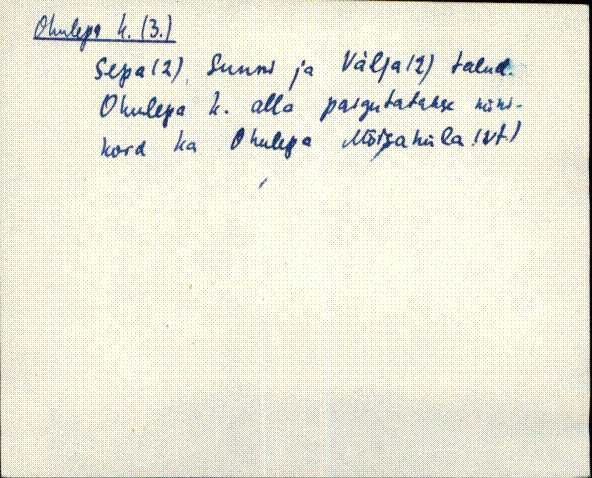 Ohulepa k. (3.)
Sepa (2), Sunni ja Välja (2) talud.
Ohulepa k. alla paigutatakse mõni-
kord ka Ohulepa Mõisaküla (vt.)